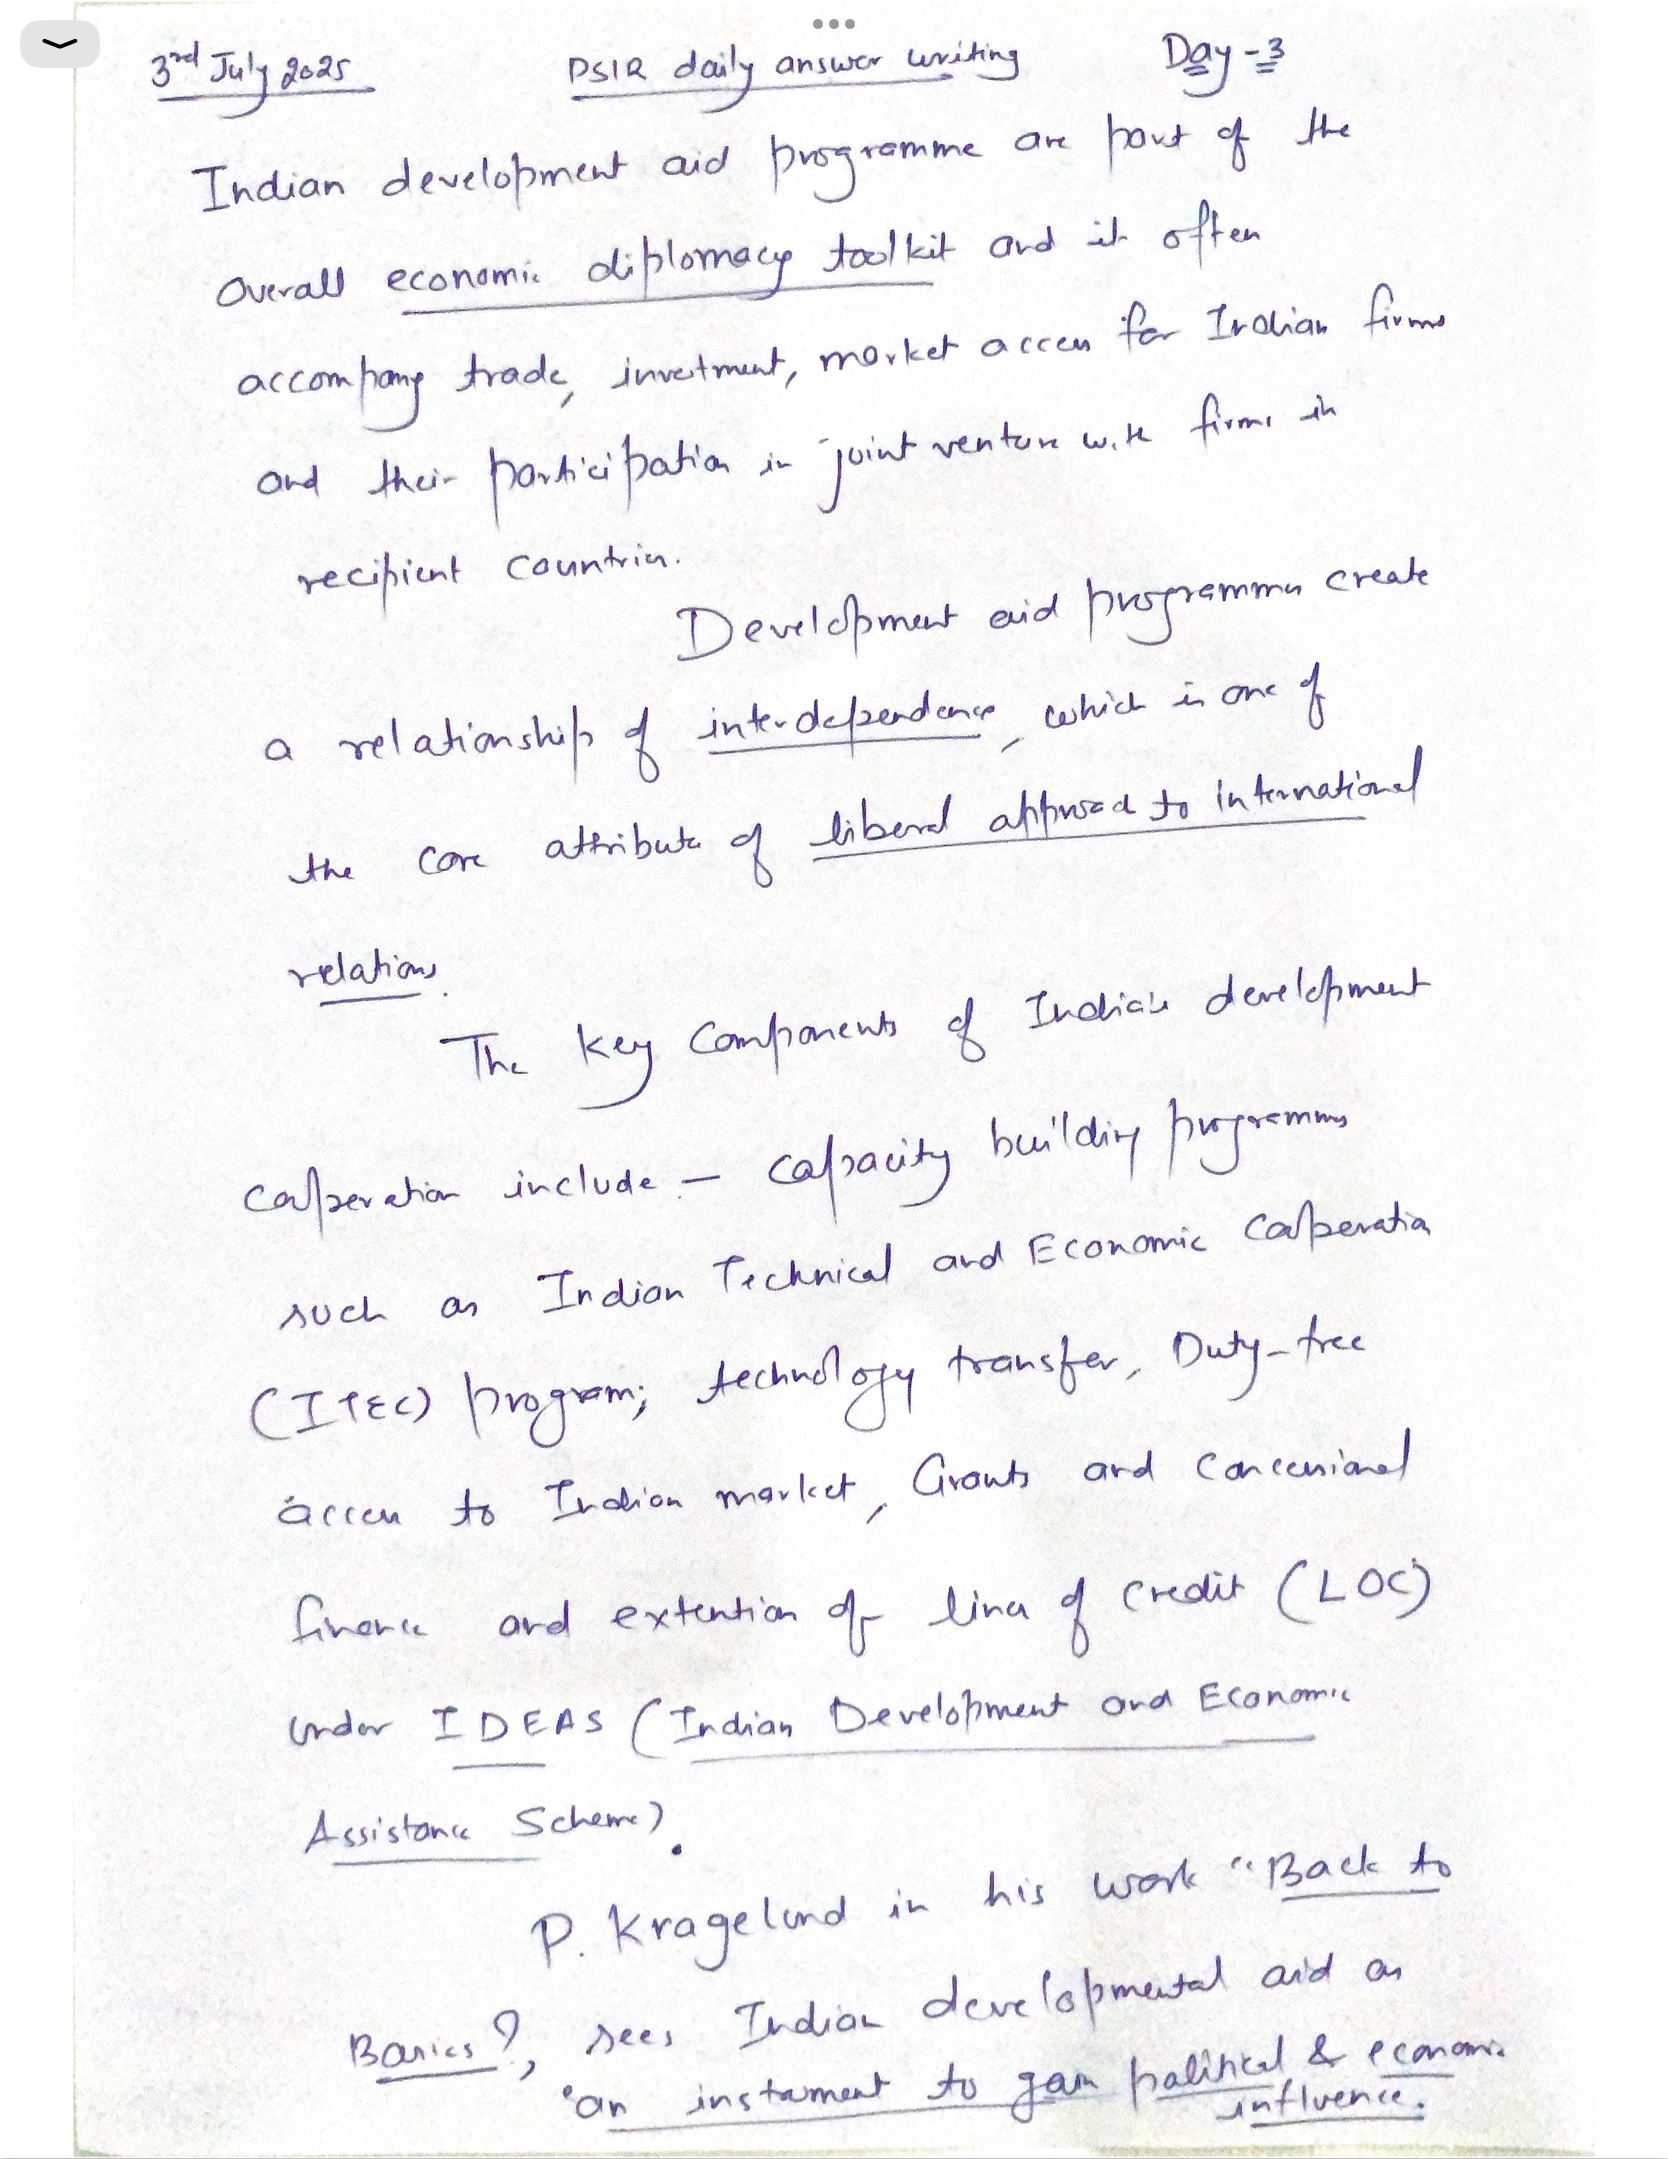 3rd July 2025 PSIR daily answer writing Day-3
Indian development aid programme are part of the
Overall economic diplomacy toolkit and it often
accompany trade, investment, market access for Indian firms
and their participation in joint venture with firms in
recipient countries.
Development aid programmes create
a relationship of interdependence, which is one of
the core attribute of liberal approach to international
relations.
The key components of Indian's development
cooperation include - capacity building programms
such as Indian Technical and Economic Cooperation
(ITEC) program; technology transfer, Duty-free
access to Indian market, Grants and concessional
finance and extention of lines of credit (LOC)
under IDEAS (Indian Development and Economic
Assistance Scheme).
P. Kragelund in his work "Back to
Basics?, sees Indian developmental aid as
'an instrument to gain political & economic
influence.